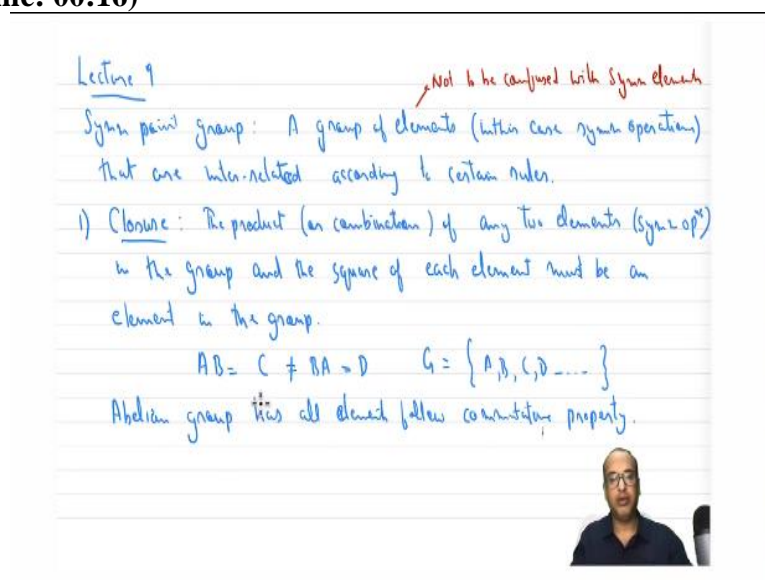 Lecture 9
Not to be confused with Symm elements
Symm point group : A group of elements (in this case symm operations)
that are inter-related according to certain rules.
1) Closure : The product (or combination) of any two elements (symm opns)
in the group and the square of each element must be an
element in the group.
AB = C ≠ BA = D G = { A, B, C, D ---- }
Abelian group has all element follow commutative property.